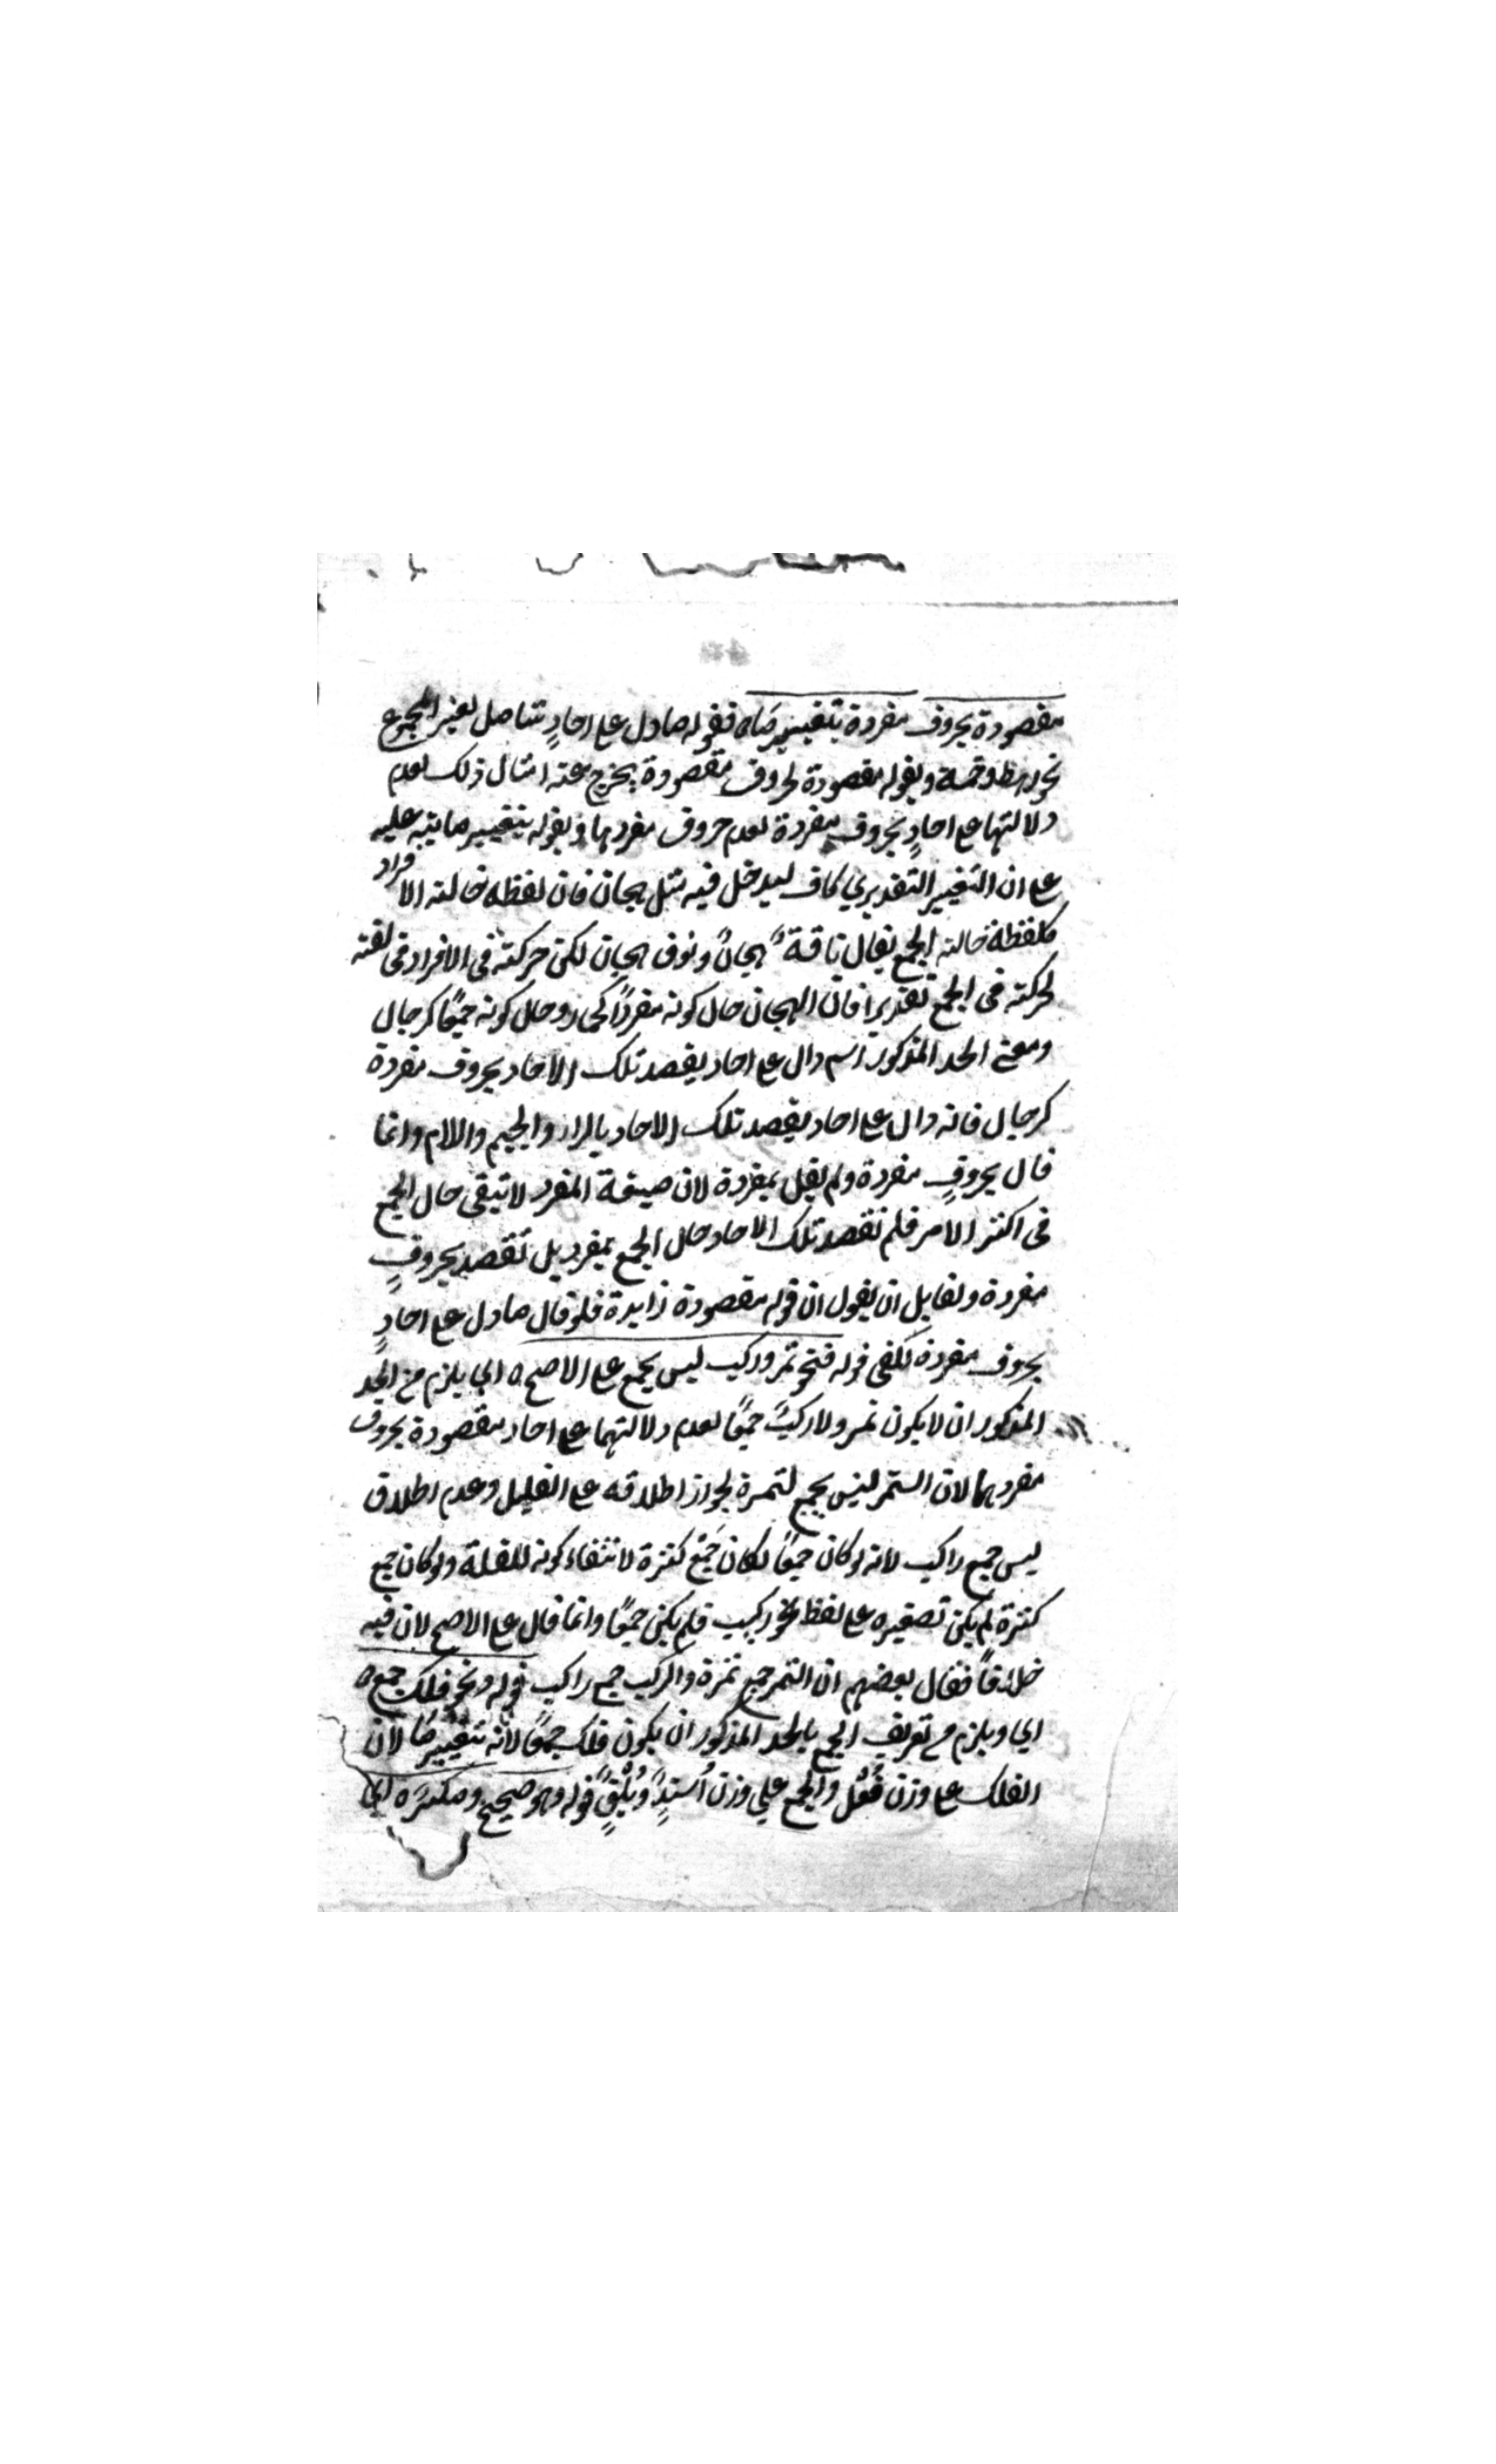 مقصودة بحروف مفردة بتغيير ماه فقوله ما دل على احادٍ شامل لغير المجموع
نحو رهط وخمسة وبقوله مقصودة بحروف مقصودة يخرج عنه امثال ذلك لعدم
دلالتها على احادٍ بحروف مفردة لعدم حروف مفردها وبقوله بتغيير ما ينبه عليه
على ان التغيير التقديري كاف ليدخل فيه مثل هجان فان لفظه حالته الافراد
كلفظه حالته الجمع يقال ناقة هجانٌ ونوق هجان لكن حركته فى الافراد مخالفته
لحركته فى الجمع تقديرا فان الهجان حال كونه مفردًا كحمار وحال كونه جمعًا كرجال
ومعنى الحد المذكور اسم دال على احاد يقصد تلك الاحاد بحروف مفردة
كرجال فانه دال على احاد يقصد تلك الاحاد بالراء والجيم واللام وانما
قال بحروفٍ مفردة ولم يقل بمفردة لان صيغة المفرد لا تبقى حال الجمع
فى اكثر الامر فلم تقصد تلك الاحاد حال الجمع بمفرد بل تقصد بحروفٍ
مفردة ولقايل ان يقول ان قوله مقصودة زايدة فلو قال ما دل على احادٍ
بحروف مفردة لكفى قوله فنحو تمر وركب ليس بجمع على الاصح ه اى يلزم من الحد
المذكور ان لا يكون تمر ولا ركبٌ جمعًا لعدم دلالتهما على احاد مقصودة بحروف
مفردهما لان التمر ليس بجمع لتمرة لجواز اطلاقه على القليل وعدم اطلاق
ليس جمع راكب لانه لو كان جمعًا لكان جَمْعَ كثرة لانتفاء كونه للقلة ولو كان جمع
كثرة لم يكن تصغيره على لفظ نحو ركيب فلم يكن جمعًا وانما قال على الاصح لان فيه
خلافاً فقال بعضهم ان التمر جمع تمرة والركب جمع راكب قوله ونحو فلك جمع ه
اى ويلزم من تعريف الجمع بالحد المذكور ان يكون فلك جمعًا لانه بتغيير ما لان
الفلك على وزن قُفْل والجمع على وزن اُسْدٍ قوله وهو صحيح ومكسّر ه اى